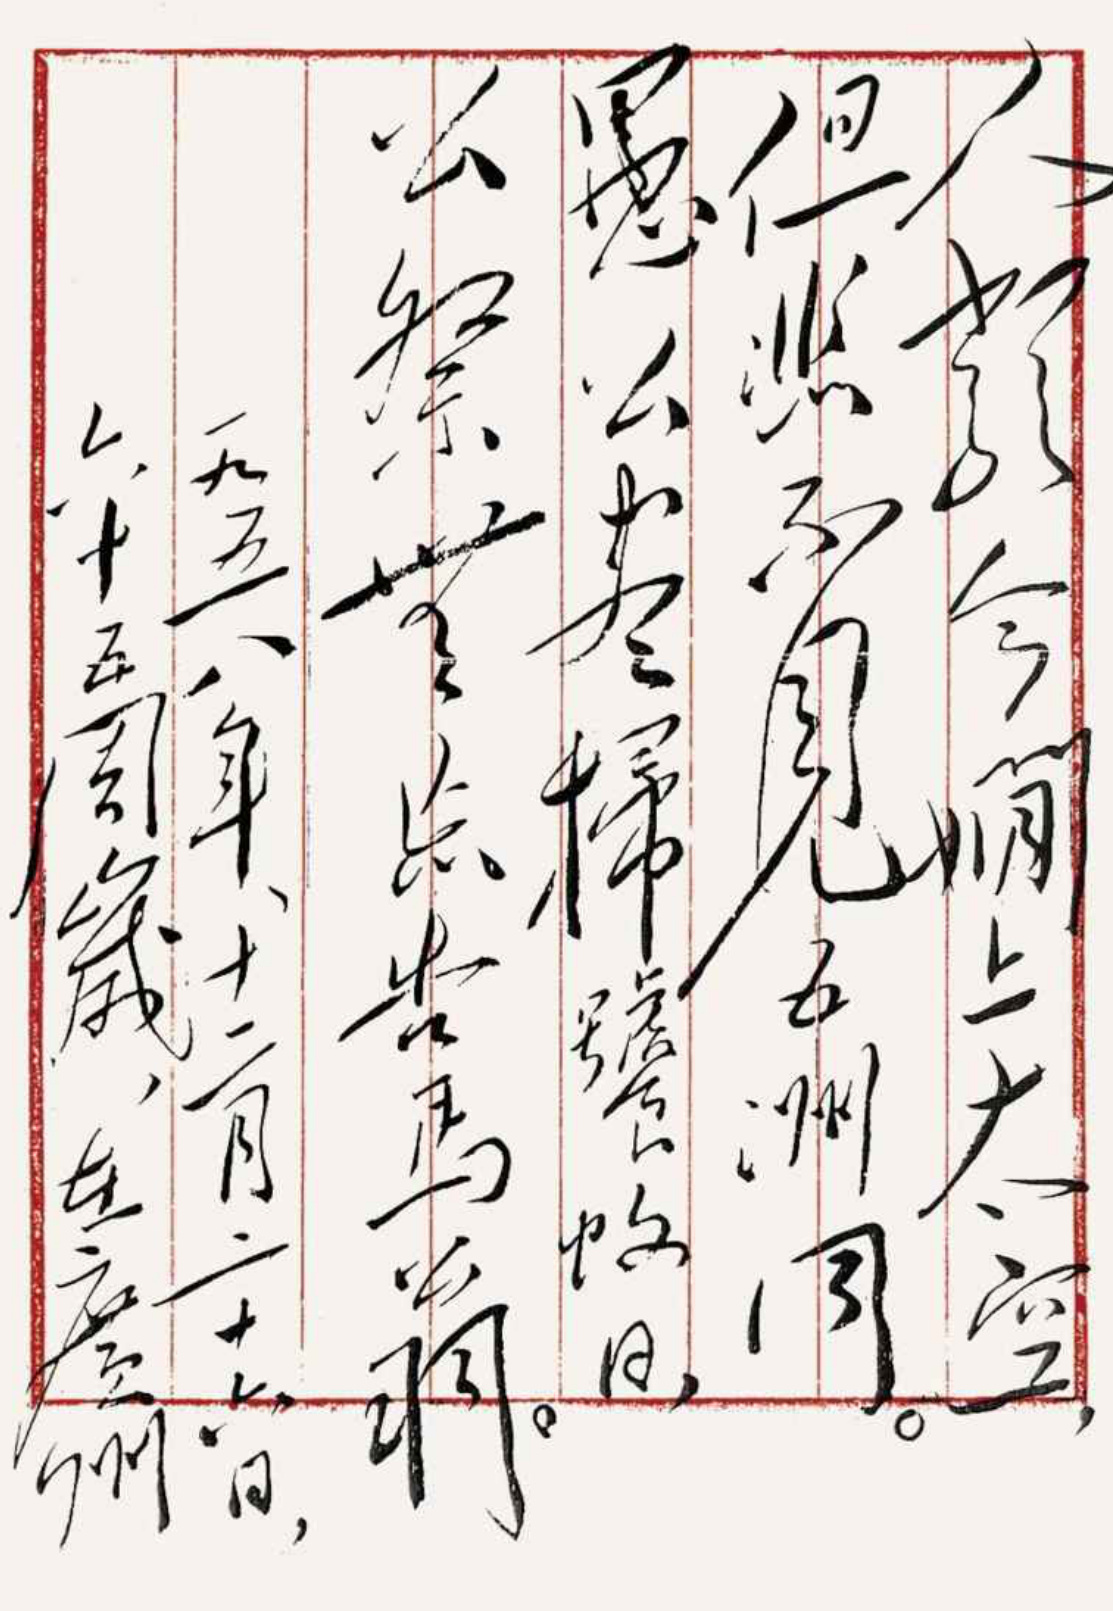 人類今嫻上太空，
但悲不見五洲同。
愚公盡掃饕蚊日，
公祭無忘告馬翁。
一九五八年、十二月二十六日，
六十五周歲，在廣州